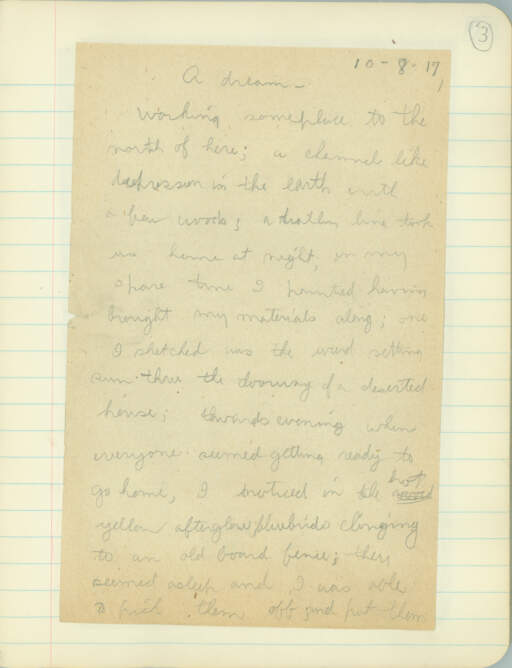 3
10-8-17
A dream -
Working someplace to the
north of here; a channel like
depression in the earth with
a few woods; a trolley line took
us home at night, in my
spare time I painted having
brought my materials along; one
I sketched was the weird setting
sun thru the doorway of a deserted
house; towards evening when
everyone seemed getting ready to
go home, I noticed in the hot
yellow afterglow, bluebirds clinging
to an old board fence; they
seemed asleep and I was able
to pick them off and put them